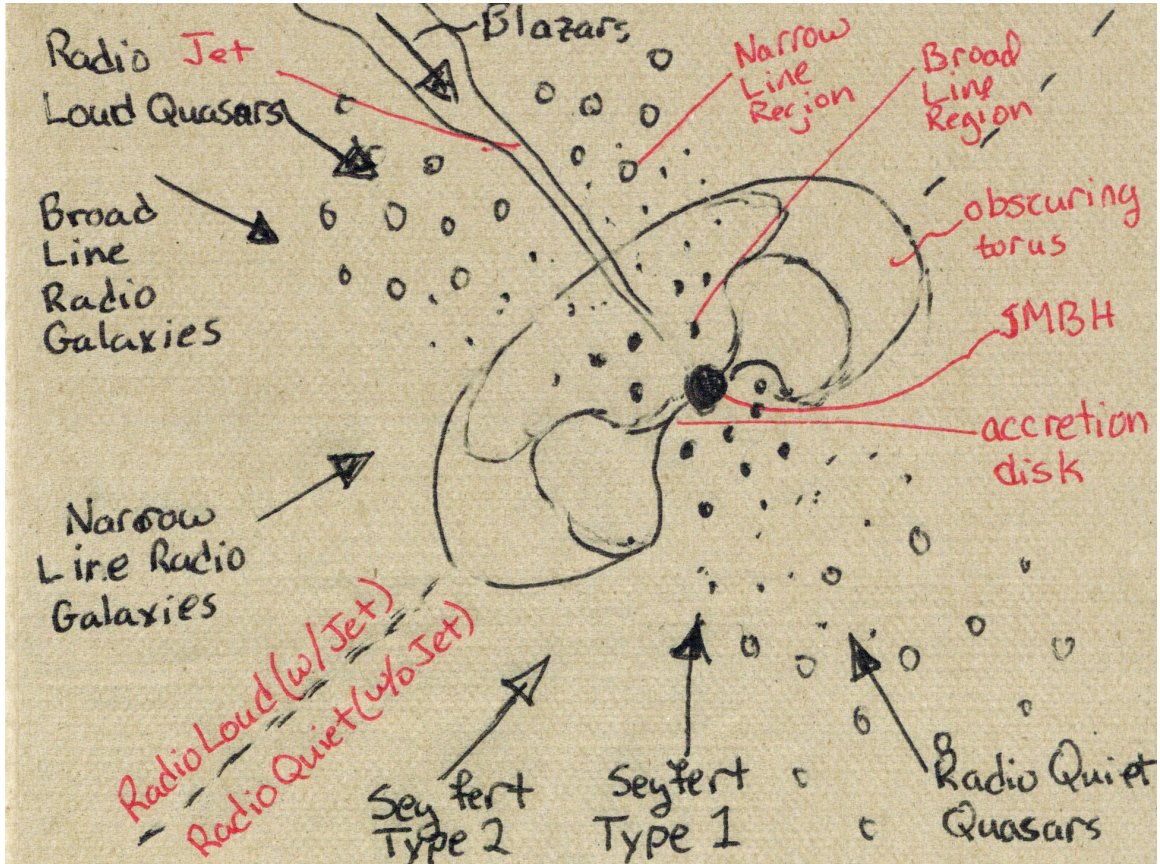 Blazars
Radio Jet
Loud Quasars
Narrow
Line
Region
Broad
Line
Region
Broad
Line
Radio
Galaxies
obscuring
torus
SMBH
accretion
disk
Narrow
Line Radio
Galaxies
Radio Loud (w/Jet)
Radio Quiet (w/o Jet)
Seyfert
Type 2
Seyfert
Type 1
Radio Quiet
Quasars